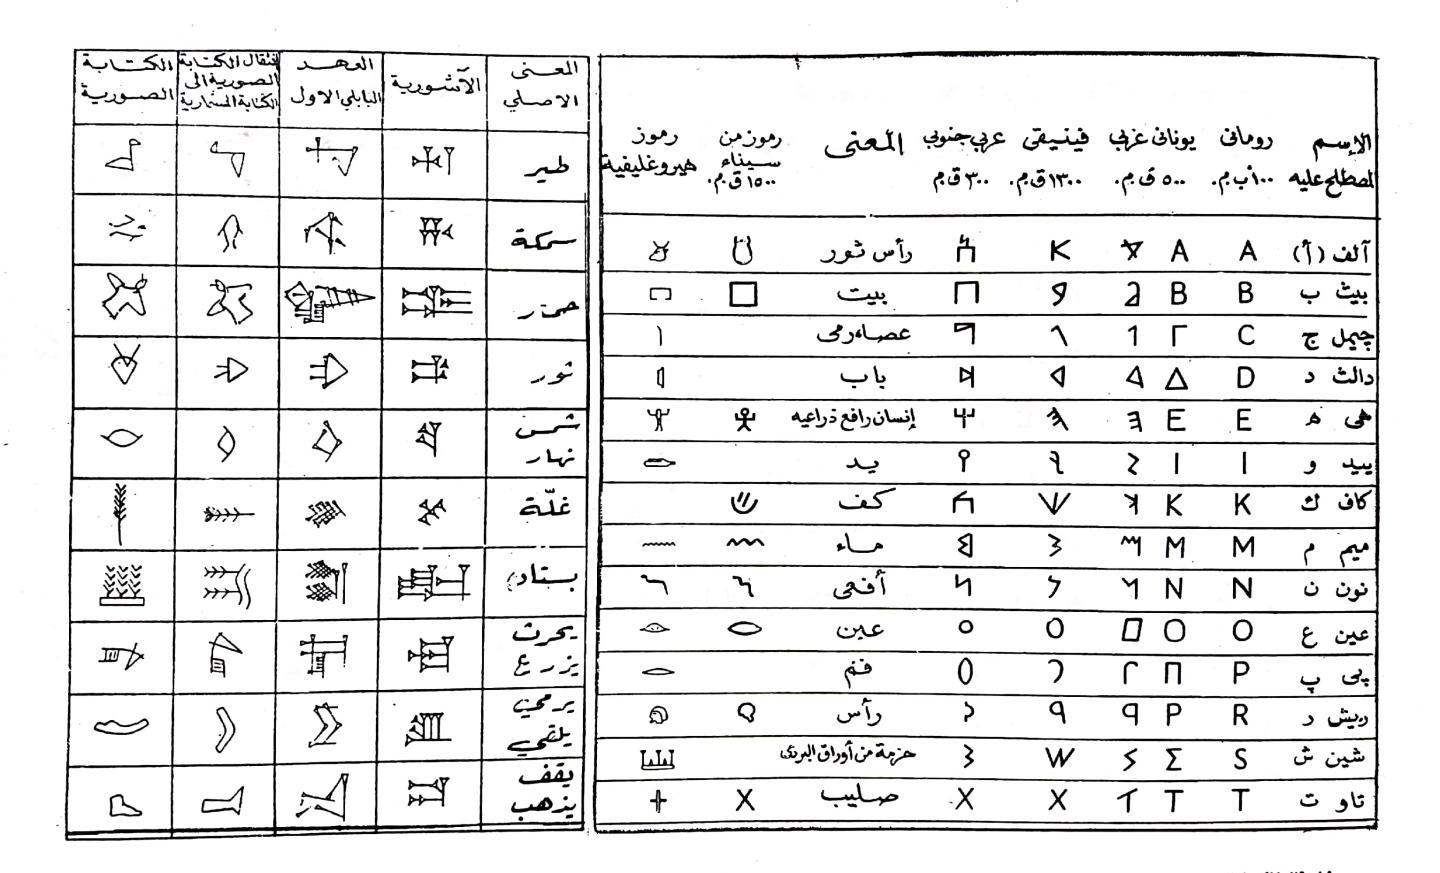 الإسم رومانى يونانى غربي فينيقى عربي جنوبي المعنى رموز من رموز
المصطلح عليه ١٠٠ ب.م. ٥٠٠ ق.م. ١٣٠٠ ق.م. ٣٠٠ ق.م. سيناء هيروغليفية
١٥٠٠ ق.م.
آلف (أ) A A رأس ثور
بيث ب B B بيت
چيمل ج C Γ عصاء رمى
دالث د D Δ باب
هى ه E E إنسان رافع ذراعيه
ييد و I I يد
كاف ك K K كف
ميم م M M ماء
نون ن N N أفعى
عين ع O O عين
پى پ P Π فم
ريش ر R P رأس
شين ش S Σ حزمة من أوراق البردى
تاو ت T T صليب
المعنى الآشورية العهد إنتقال الكتابة الكتابة
الاصلي البابلي الاول الصورية الى الصورية
الكتابة المسمارية
طير
سمكة
حمار
ثور
شمس
نهار
غلّة
بستان
يحرث
يزرع
يرمي
يلقي
يقف
يذهب